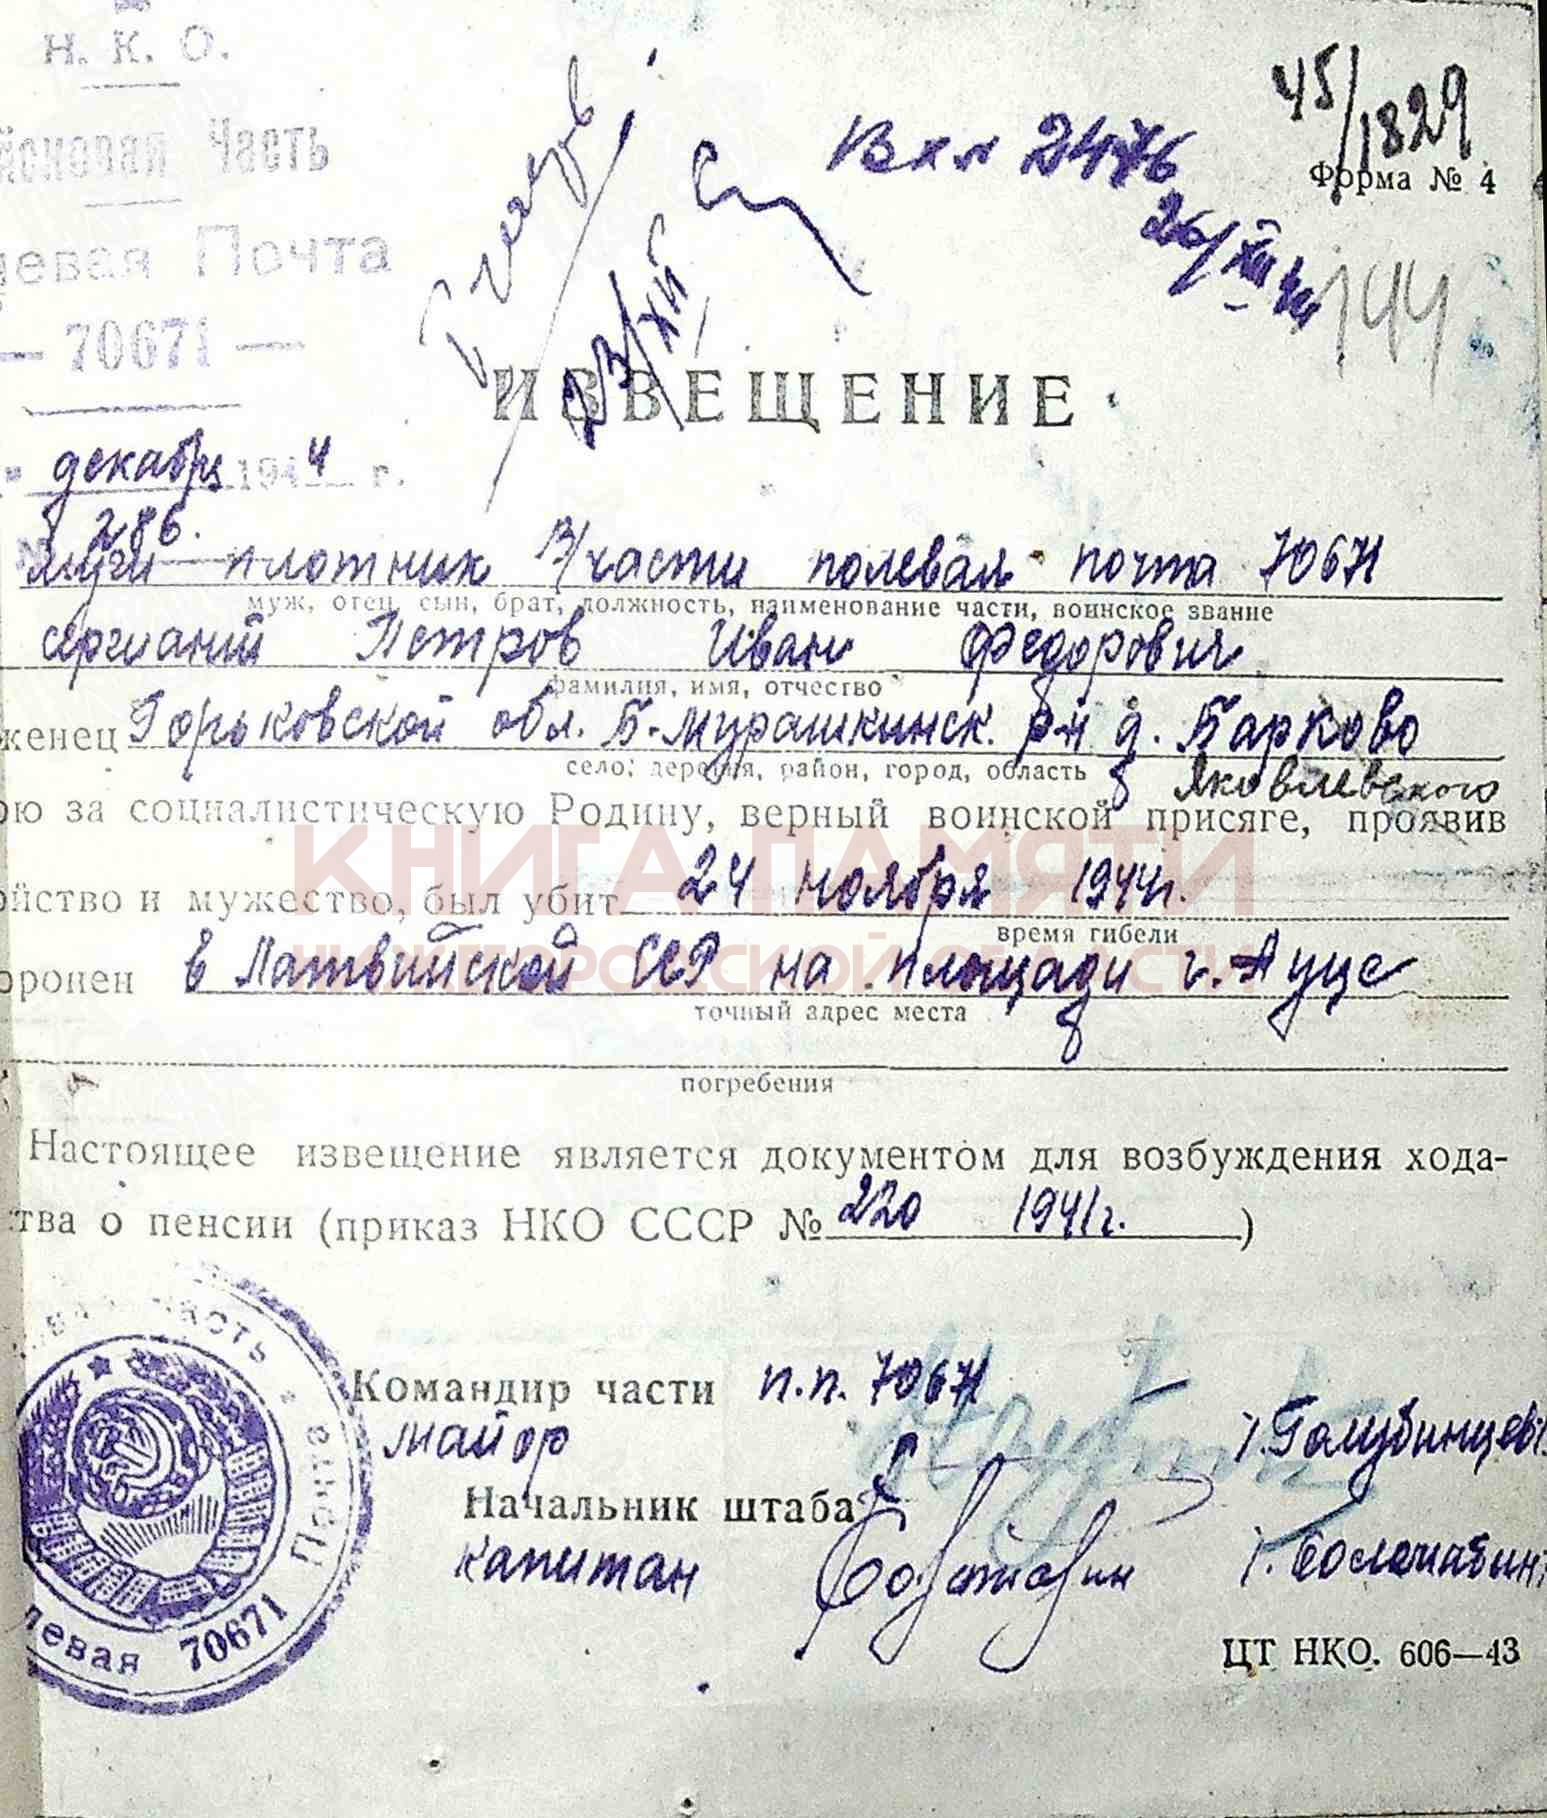 Н. К. О.
45/1829
Вхл 2476
йсковая Часть
Форма № 4
26/XII 44
144
23/XII
евая Почта
— 70671 —
ИЗВЕЩЕНИЕ
декабря 1944 г.
286.
плотник в/части полевая почта 70671
муж, отец, сын, брат, должность, наименование части, воинское звание
Петров Иван Федорович
фамилия, имя, отчество
женец Горьковской обл. Б.-Мурашкинск. р-н д. Барково
село, деревня, район, город, область
Яковлевского
ою за социалистическую Родину, верный воинской присяге, проявив
ойство и мужество, был убит 24 ноября 1944г.
время гибели
оронен в Латвийской ССР на площади г. Ауце
точный адрес места
погребения
Настоящее извещение является документом для возбуждения хода-
тва о пенсии (приказ НКО СССР № 220 1941г.)
Командир части п.п. 70671
майор /.Голубинцев/.
Начальник штаба
капитан
ЦТ НКО. 606—43
левая 70671 Почта
КНИГА ПАМЯТИ
НИЖЕГОРОДСКОЙ ОБЛАСТИ